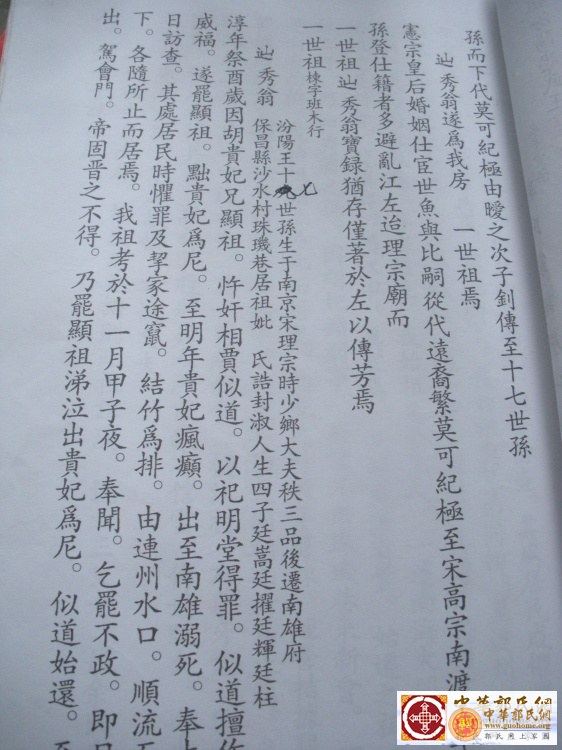 孫而下代莫可紀極由曖之次子釗傳至十七世孫
辿秀翁遂爲我房 一世祖焉
憲宗皇后婚姻仕宦世魚與比嗣從代遠裔繁莫可紀極至宋高宗南渡
孫登仕籍者多避亂江左迨理宗廟而
一世祖辿 秀翁寶録猶存僅著於左以傳芳焉
一世祖棟字班木行
辿 秀翁
汾陽王十七世孫生于南京宋理宗時少鄉大夫秩三品後遷南雄府
保昌縣沙水村珠璣巷居祖妣 氏誥封淑人生四子廷嵩廷擢廷輝廷柱
淳年祭酉歲因胡貴妃兄顯祖。忤奸相賈似道。以祀明堂得罪。似道擅作
威福。遂罷顯祖。黜貴妃爲尼。至明年貴妃瘋癲。出至南雄溺死。奉
日訪查。其處居民時懼罪及挈家途竄。結竹爲排。由連州水口。順流
下。各隨所止而居焉。我祖考於十一月甲子夜。奉聞。乞罷不政。即日
出。駕會門。帝固晋之不得。乃罷顯祖涕泣出貴妃爲尼。似道始還。
中華郭氏網
www.guohome.com
郭氏网上家園